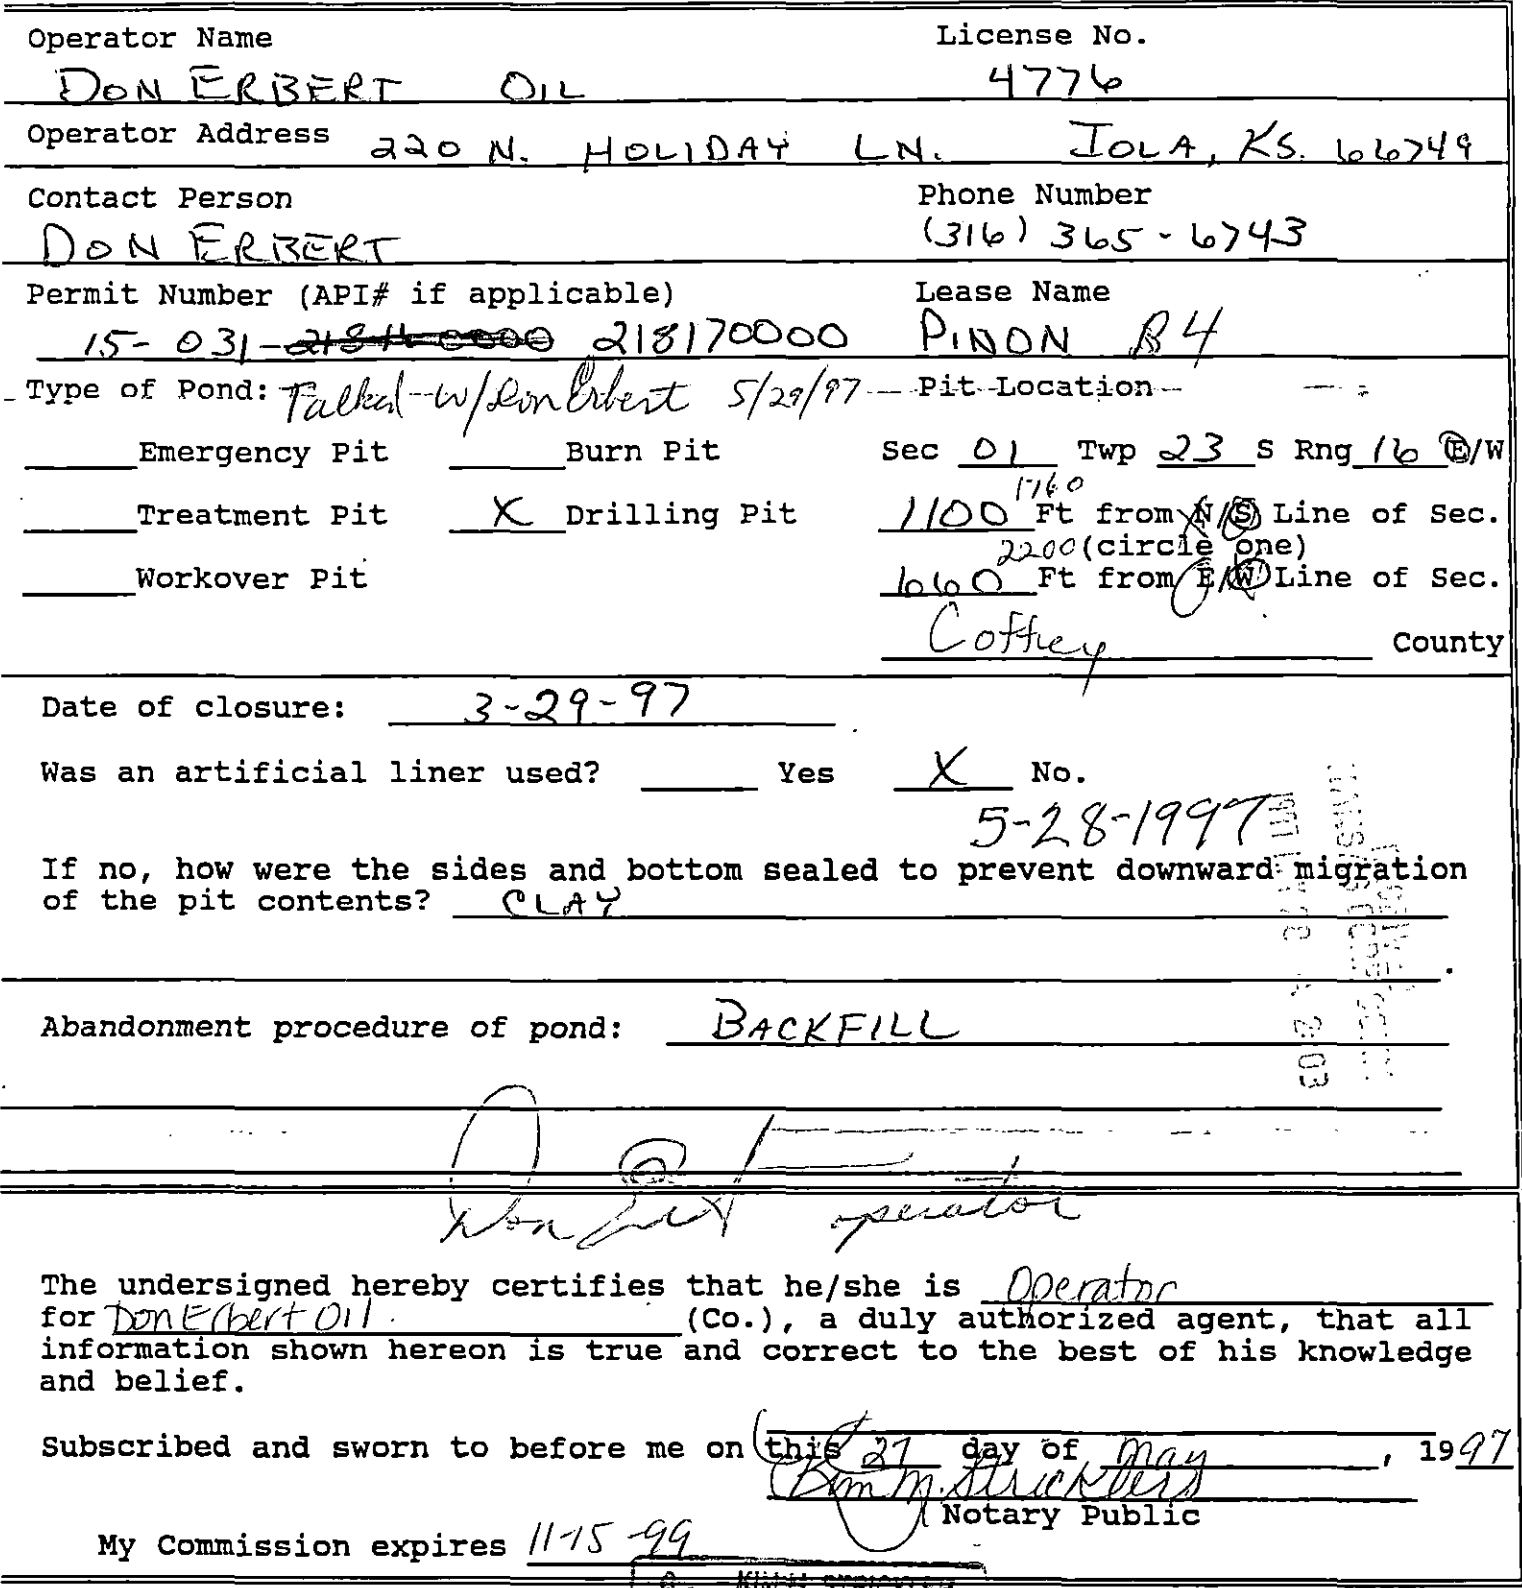 Operator Name License No.
DON ERBERT OIL 4776
Operator Address 220 N. HOLIDAY LN. IOLA, KS. 66749
Contact Person Phone Number
DON ERBERT (316) 365-6743
Permit Number (API# if applicable) Lease Name
15-031- 218170000 PINON B4
Type of Pond: Talked w/ Don Erbert 5/29/97 Pit Location
Emergency Pit Burn Pit Sec 01 Twp 23 S Rng 16 E/W
1760
Treatment Pit X Drilling Pit 1100 Ft from N/S Line of Sec.
2200 (circle one)
Workover Pit 660 Ft from E/W Line of Sec.
Coffey County
Date of closure: 3-29-97
Was an artificial liner used? Yes X No.
5-28-1997
If no, how were the sides and bottom sealed to prevent downward migration
of the pit contents? CLAY
Abandonment procedure of pond: BACKFILL
Don Erbert operator
The undersigned hereby certifies that he/she is Operator
for Don Erbert Oil. (Co.), a duly authorized agent, that all
information shown hereon is true and correct to the best of his knowledge
and belief.
Subscribed and sworn to before me on this 27 day of May, 1997
Kim M. Stricklers
Notary Public
My Commission expires 11-15-99